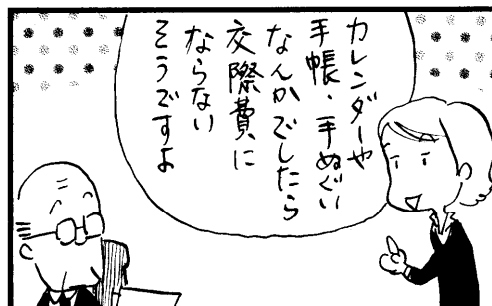 カレンダーや
手帳、手ぬぐい
なんかでしたら
交際費に
ならない
そうですよ